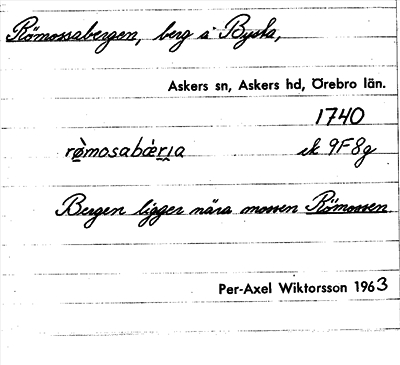 Römossabergen, berg å Bysta,
Askers sn, Askers hd, Örebro län.
1740
rø̀mosabæ̀rɪa ek 9F8g
Bergen ligger nära mossen Römossen
Per-Axel Wiktorsson 1963